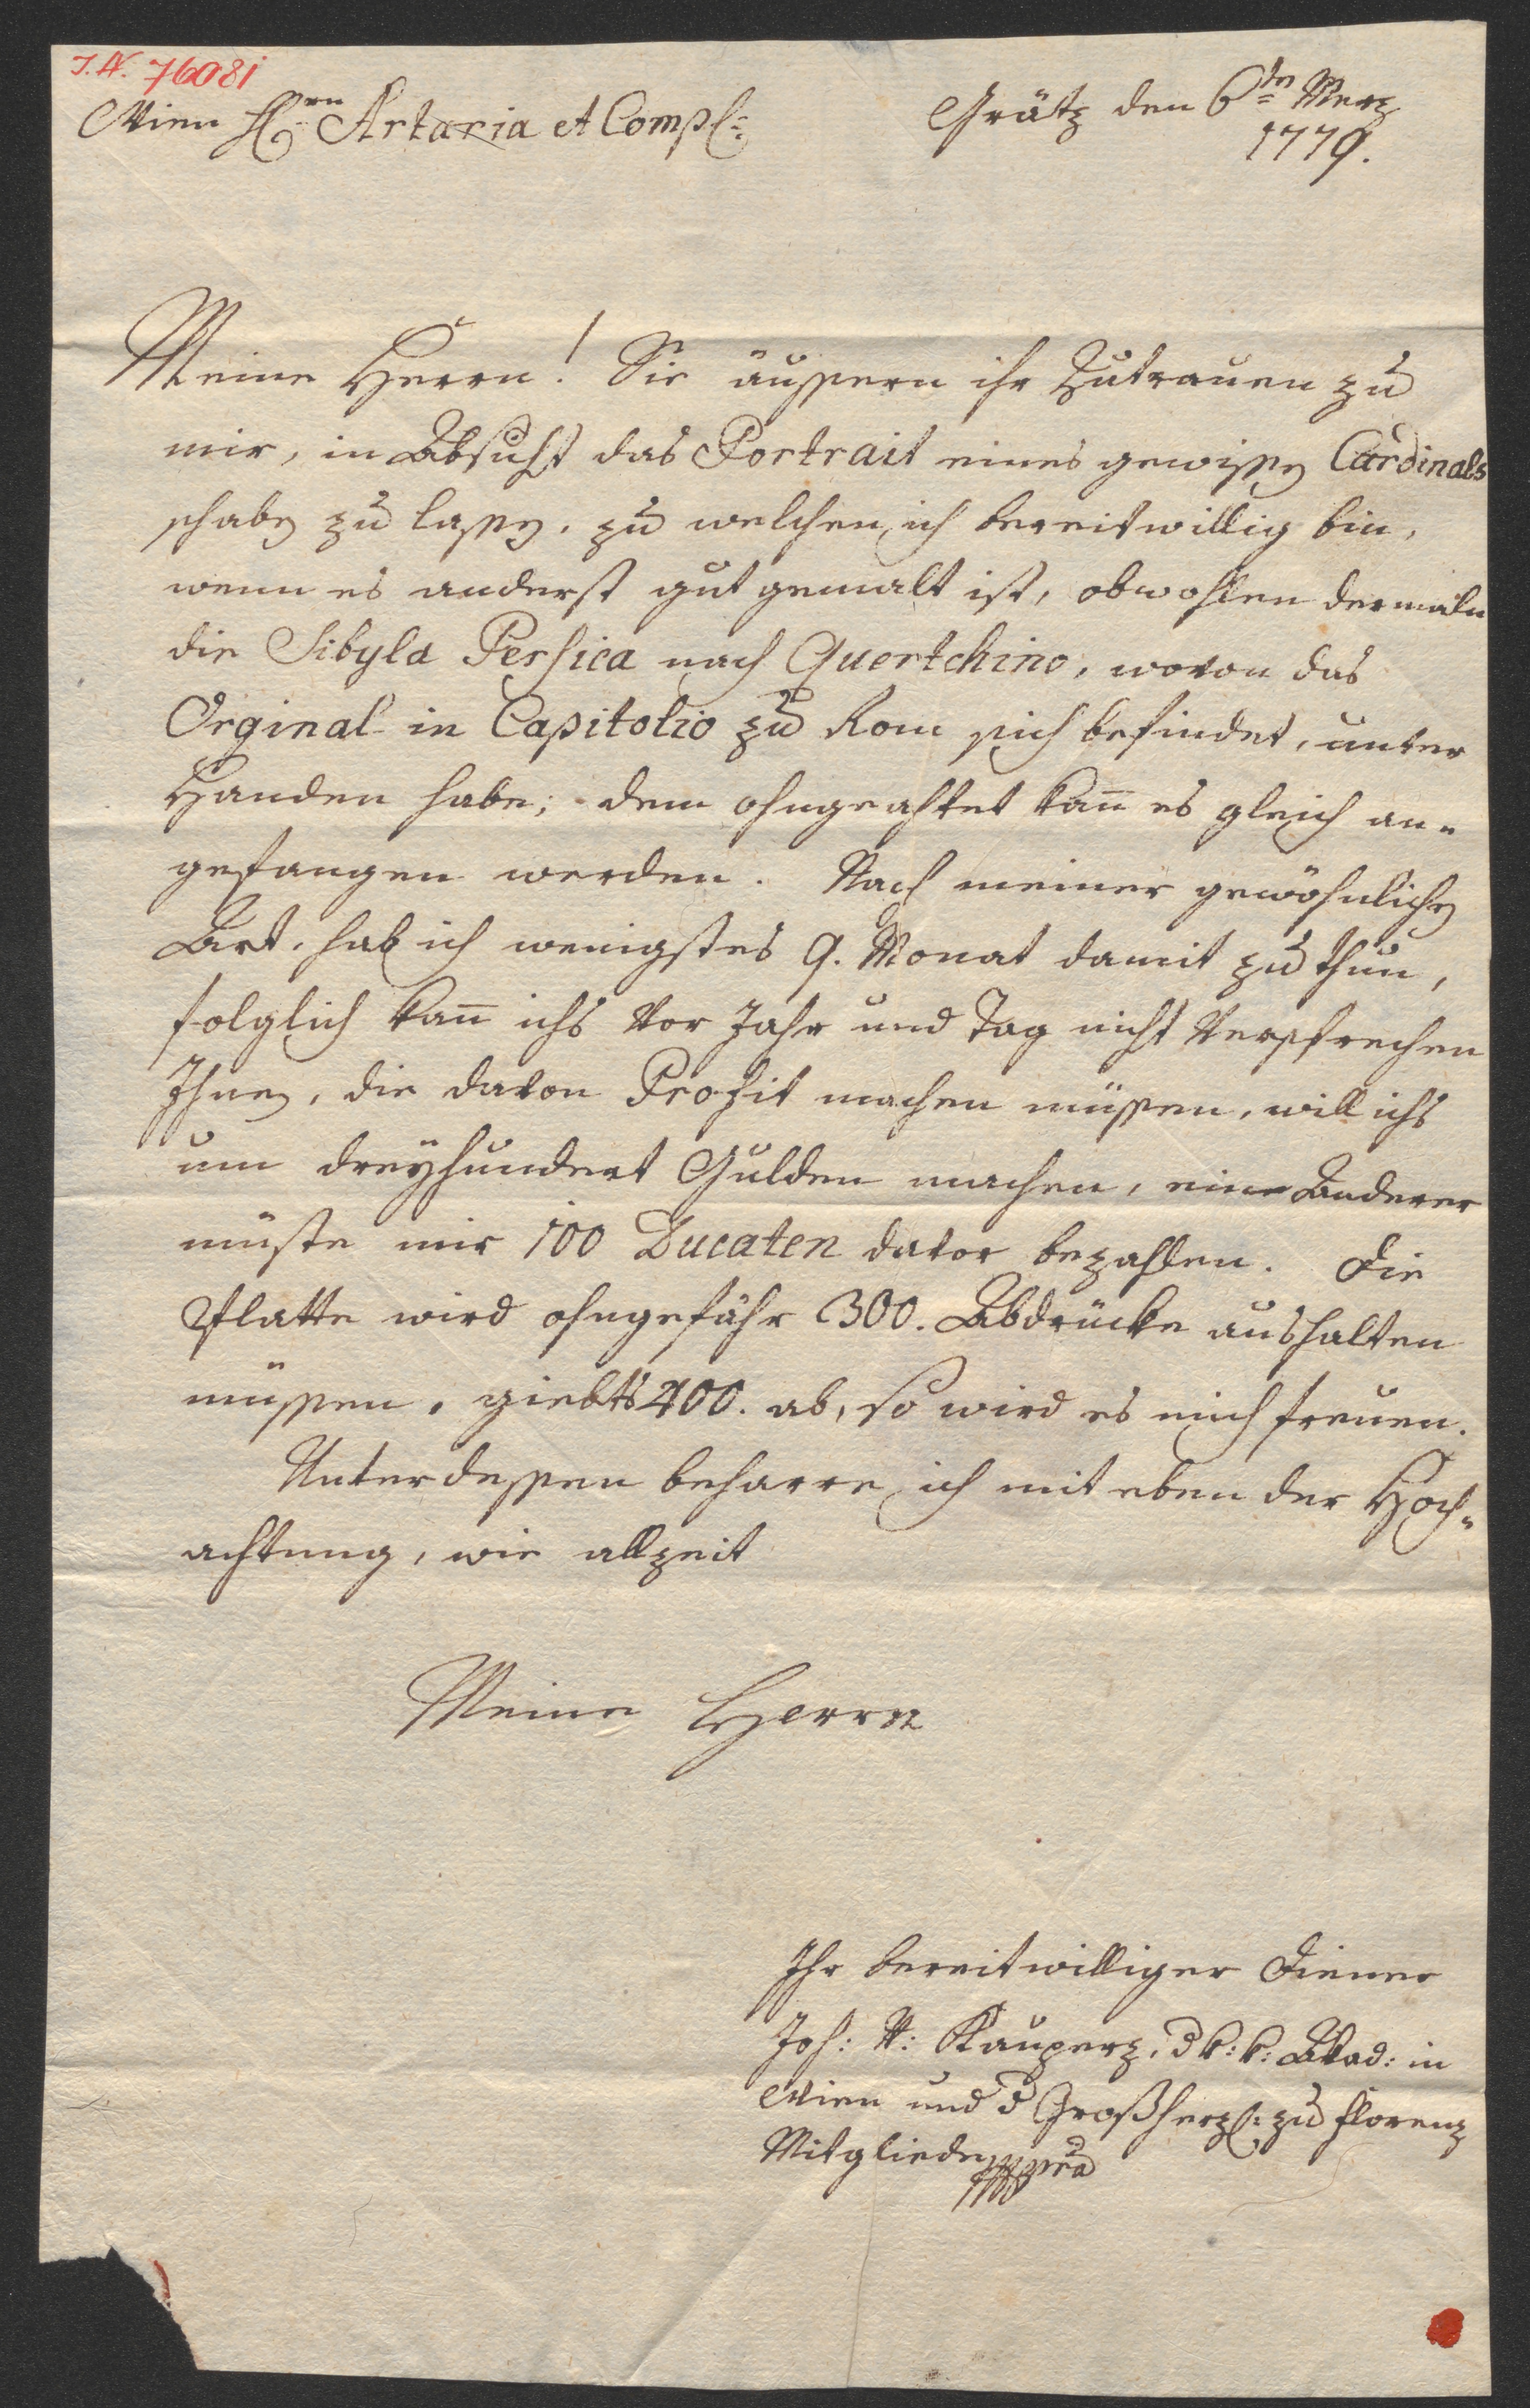 I.N. 76081
Wien Hrn Artaria et Comp:
Grätz den 6ten Merz
1779.
Meine Herrn! Sie äussern ihr Zutrauen zu
mir, in Absicht das Portrait eines gewissen Cardinals
schaben zu lassen, zu welchen ich bereitwillig bin,
wenn es anderst gut gemalt ist, obwohlen dermaln
die Sibyla Persica nach Quertchino, wovon das
Orginal in Capitolio zu Rom sich befindet, unter
Handen habe; dem ohngeachtet kan̅ es gleich an-
gefangen werden. Nach meiner gewöhnlichen
Art, hab ich wenigstes 9. Monat damit zu thun,
folglich kan̅ ichs vor Jahr und Tag nicht versprechen
Ihnen, die davon Profit machen müssen, will ichs
um dreyhundert Gulden machen, ein Anderer
müste mir 100 Ducaten davor bezahlen. Die
Platte wird ohngefähr 300. Abdrücke aushalten
müssen, giebts 400. ab, so wird es mich freuen.
Unterdessen beharre ich mit eben der Hoch-
achtung, wie allzeit
Meine Herrn
Ihr bereitwilliger Diener
Joh: V: Kauperz, d k: k: Akad: in
Wien und d Großherzl: zu Florenz
Mitglied